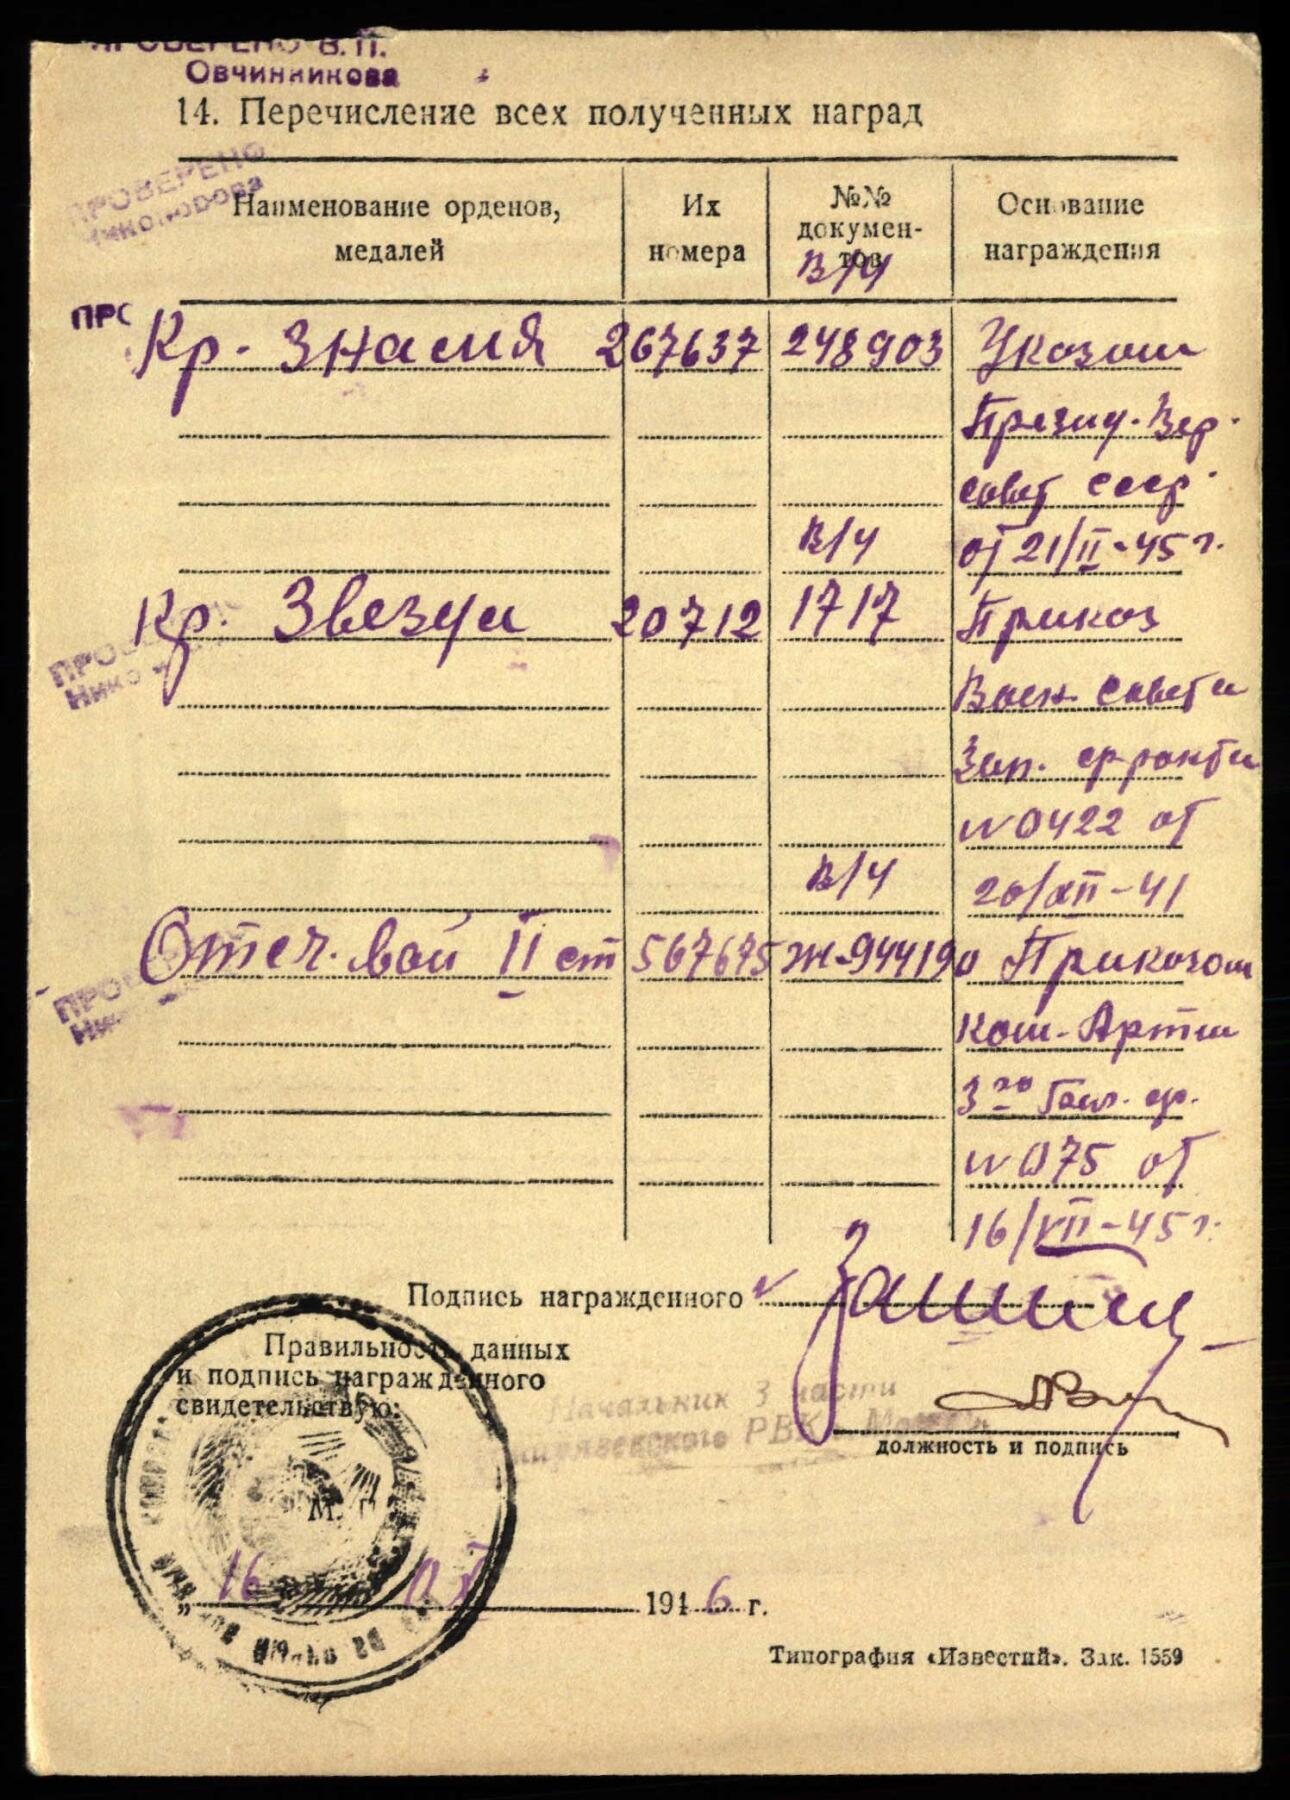 ПРОВЕРЕНО В.П.
Овчинникова
14. Перечисление всех полученных наград
ПРОВЕРЕНО
Наименование орденов, медалей
Их номера
№№ документов
Основание награждения
В/Ч
ПРО
Кр. Знамя 267637 248903 Указом
Презид. Вер.
Совет СССР
от 21/II-45 г.
В/Ч
Кр. Звезда 20712 1717 Приказ
Воен. Совета
Зап. фронта
N 0422 от
20/XII-41
В/Ч
Отеч. вой II ст 567675 Ж-944190 Приказом
Ком. Артил
3го Бел. фр.
N 075 от
16/VII-45 г.
Подпись награжденного
Правильность данных
и подпись награжденного
свидетельствую:
Начальник 3 части
РВК
должность и подпись
М. П.
„ 16 1946 г.
Типография «Известий». Зак. 1559